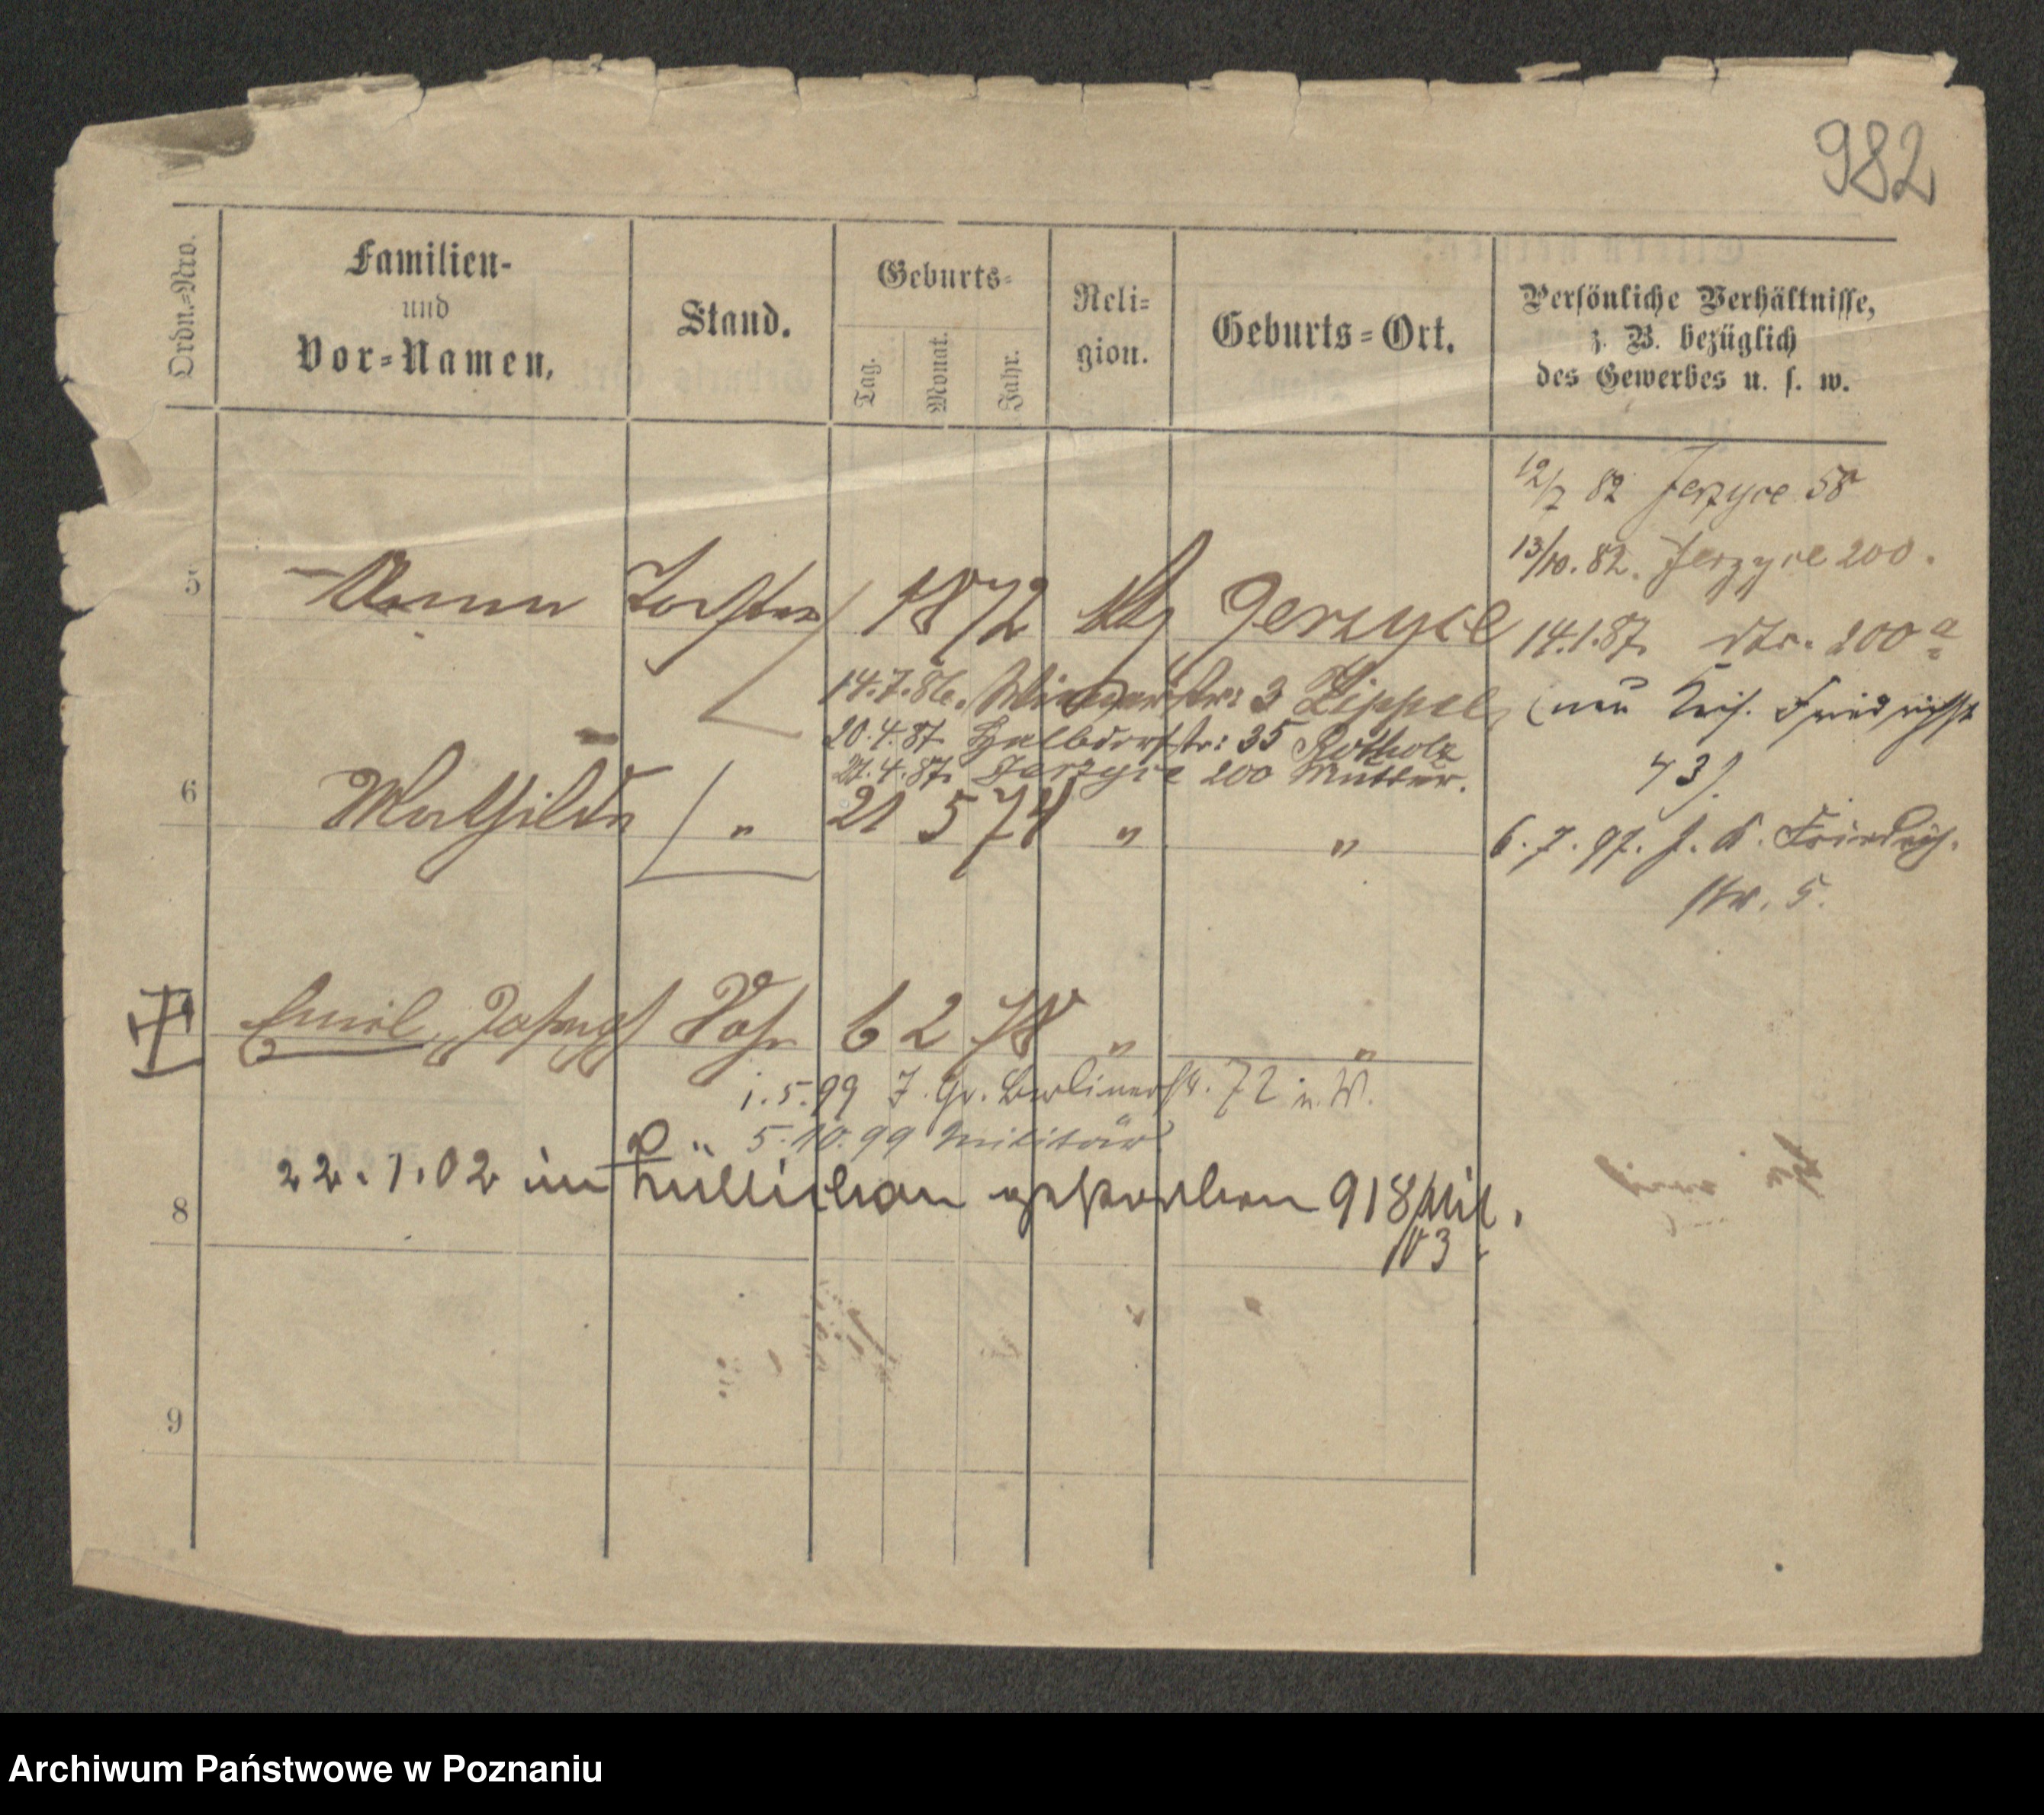 982
Ordn.-Nro.
Familien-
und
Vor-Namen,
Stand.
Geburts-
Tag.
Monat.
Jahr.
Reli-
gion.
Geburts-Ort.
Persönliche Verhältnisse,
z. B. bezüglich
des Gewerbes u. s. w.
12/7 82 Jerzyce 58
13/10. 82. Jerzyce 200.
5 Anna Tochter 1872 Gerzyce
14.1.87. dto. 200 a
14.7.86. 3 Zippel
(neu Kais. Friedrichstr
43).
20.4.87 Halbdorfstr: 35 Rotholz
21.4.87. Jerzyce 200 Mutter.
6 Mathilde " 21 5 74 " "
6.7.97. J. K. Friedrich.
str. 5.
Emil, Joseph Sohn 6 2 78 " "
1.5.99 J. Gr. Berlinerstr. 72 n. W.
" 5.10.99 Militär
22.1.02 in Züllichau gestorben 918 Mil.
03.
8
9
Archiwum Państwowe w Poznaniu